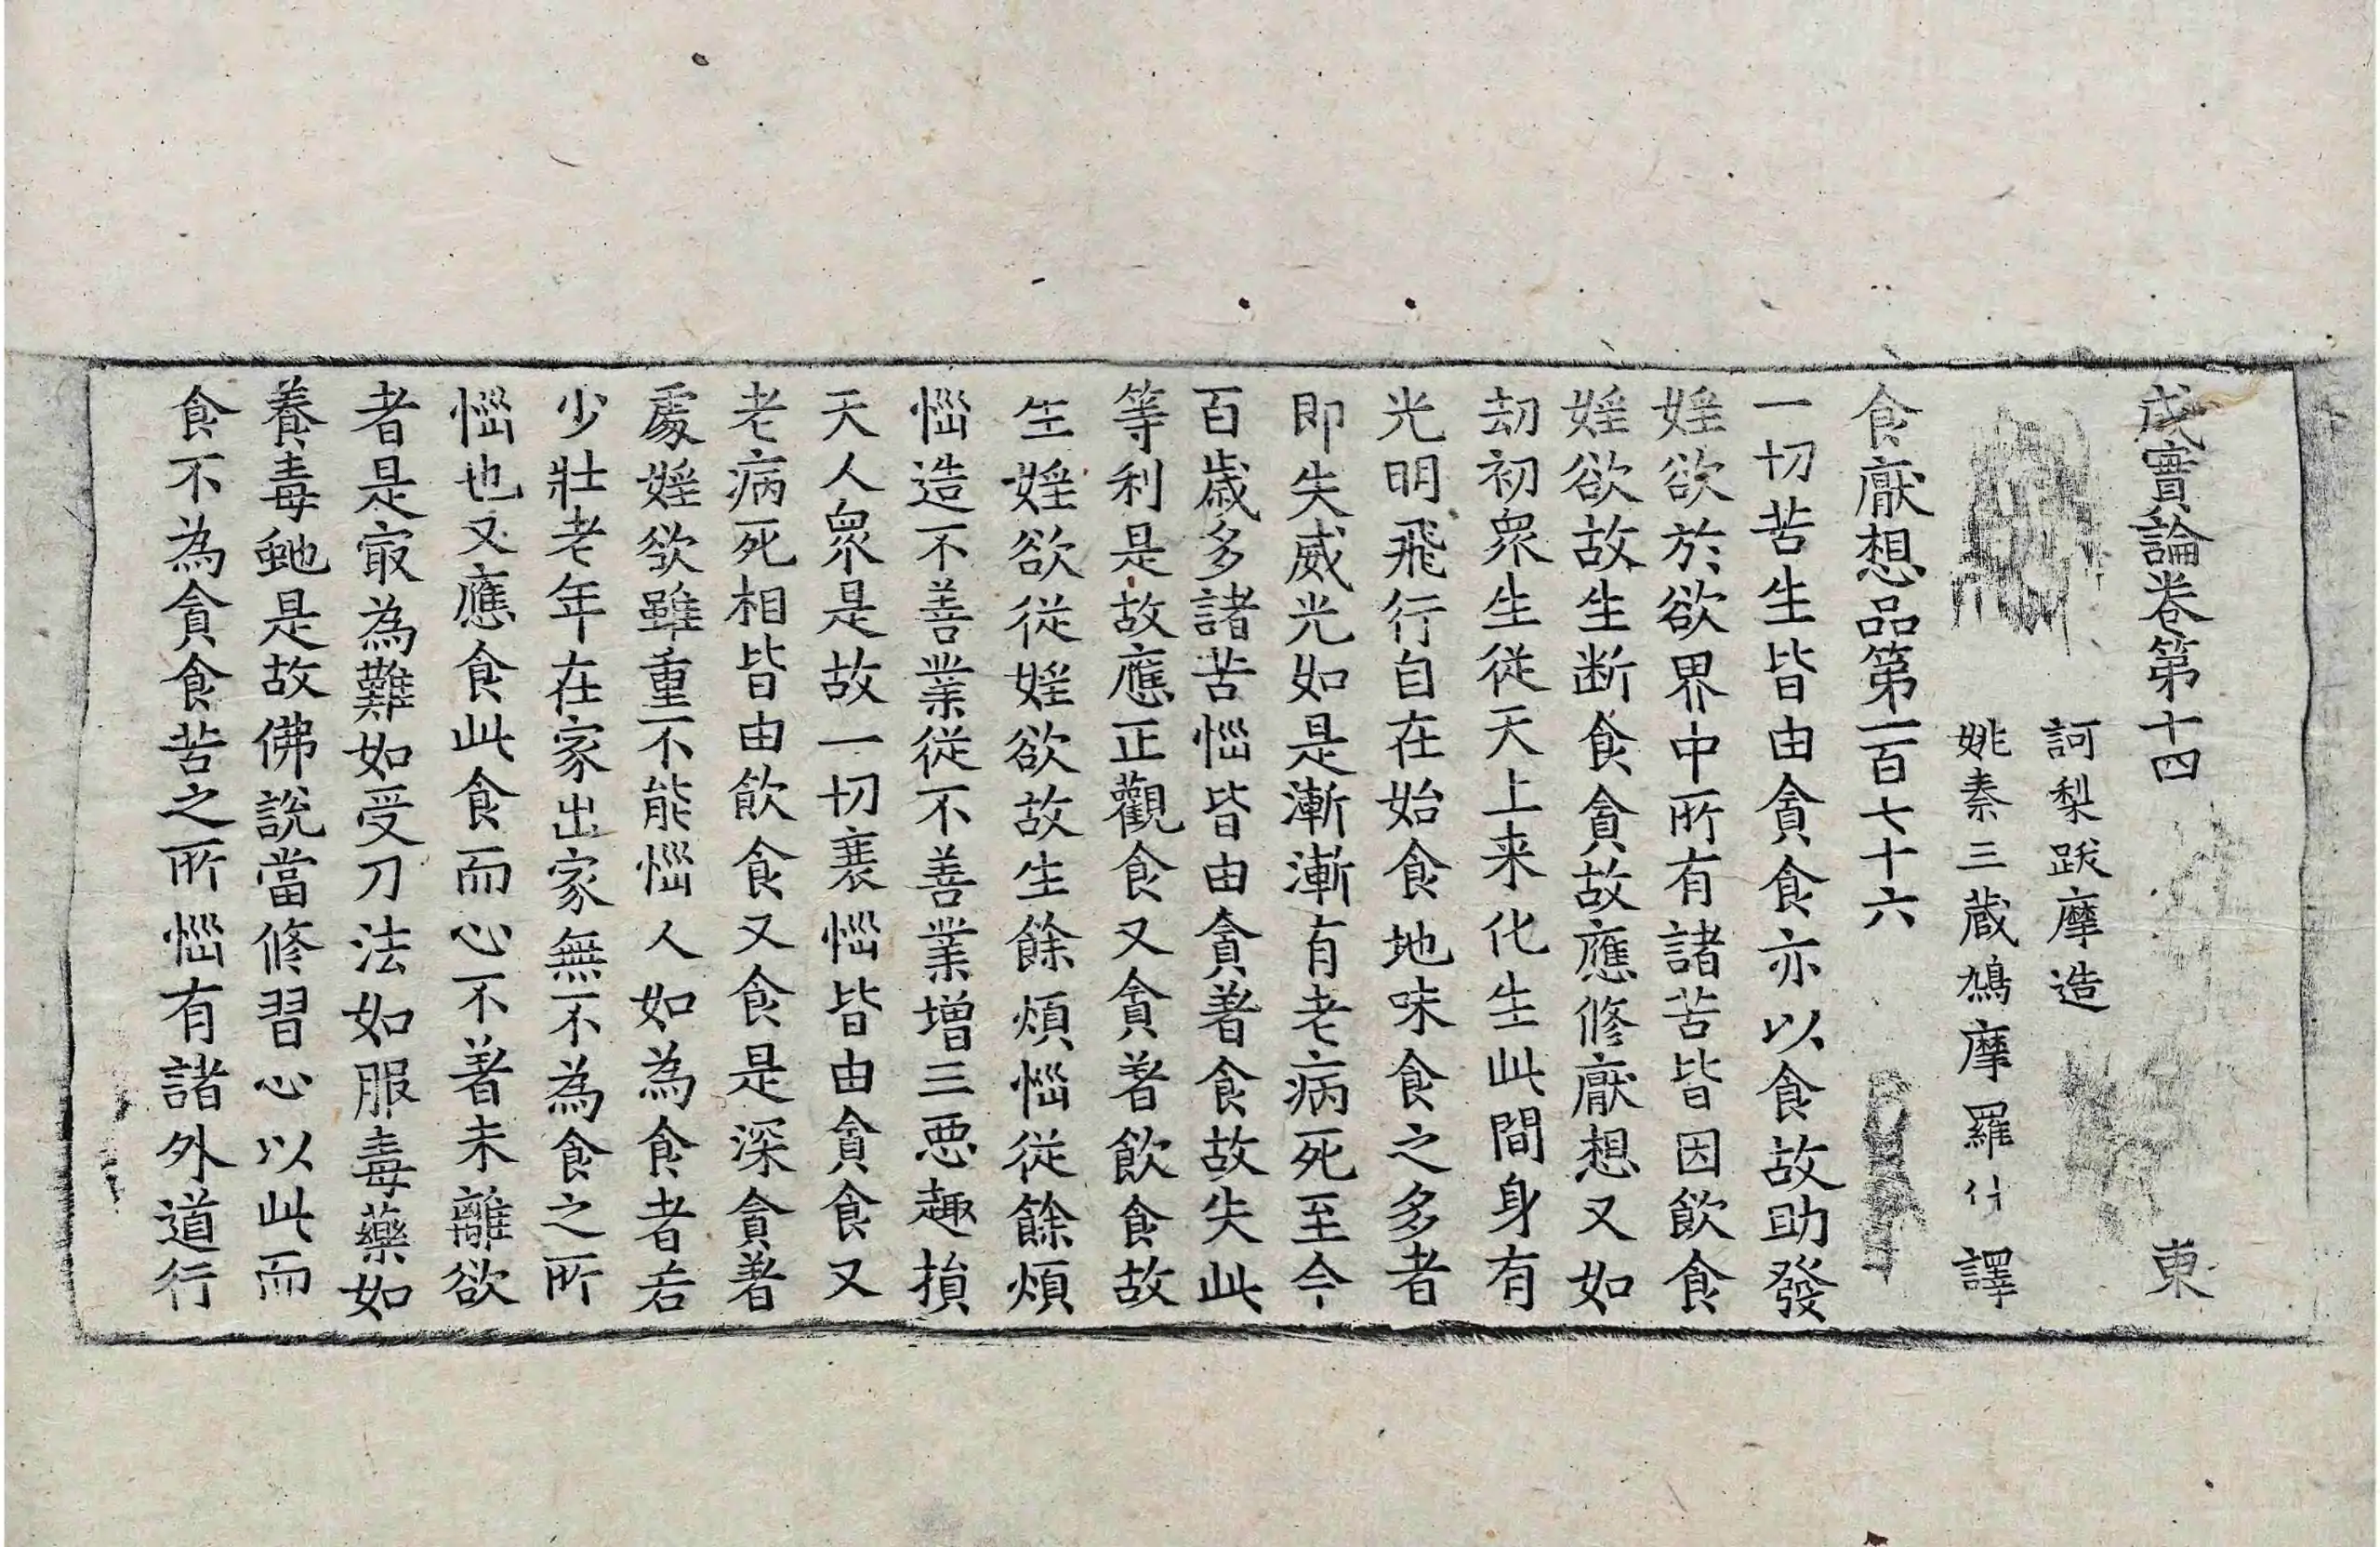 成實論卷第十四 東
訶梨跋摩造
姚秦三蔵鳩摩羅什 譯
食厭想品第一百七十六
一切苦生皆由貪食亦以食故助發
婬欲於欲界中所有諸苦皆因飲食
婬欲故生断食貪故應修厭想又如
劫初眾生從天上来化生此間身有
光明飛行自在始食地味食之多者
即失威光如是漸漸有老病死至今
百歳多諸苦惱皆由貪著食故失此
等利是故應正觀食又貪著飲食故
生婬欲從婬欲故生餘煩惱從餘煩
惱造不善業從不善業增三惡趣損
天人眾是故一切衰惱皆由貪食又
老病死相皆由飲食又食是深貪著
處婬欲雖重不能惱人如為食者若
少壯老年在家出家無不為食之所
惱也又應食此食而心不著未離欲
者是㝡為難如受刀法如服毒藥如
養毒虵是故佛說當修習心以此而
食不為貪食苦之所惱有諸外道行